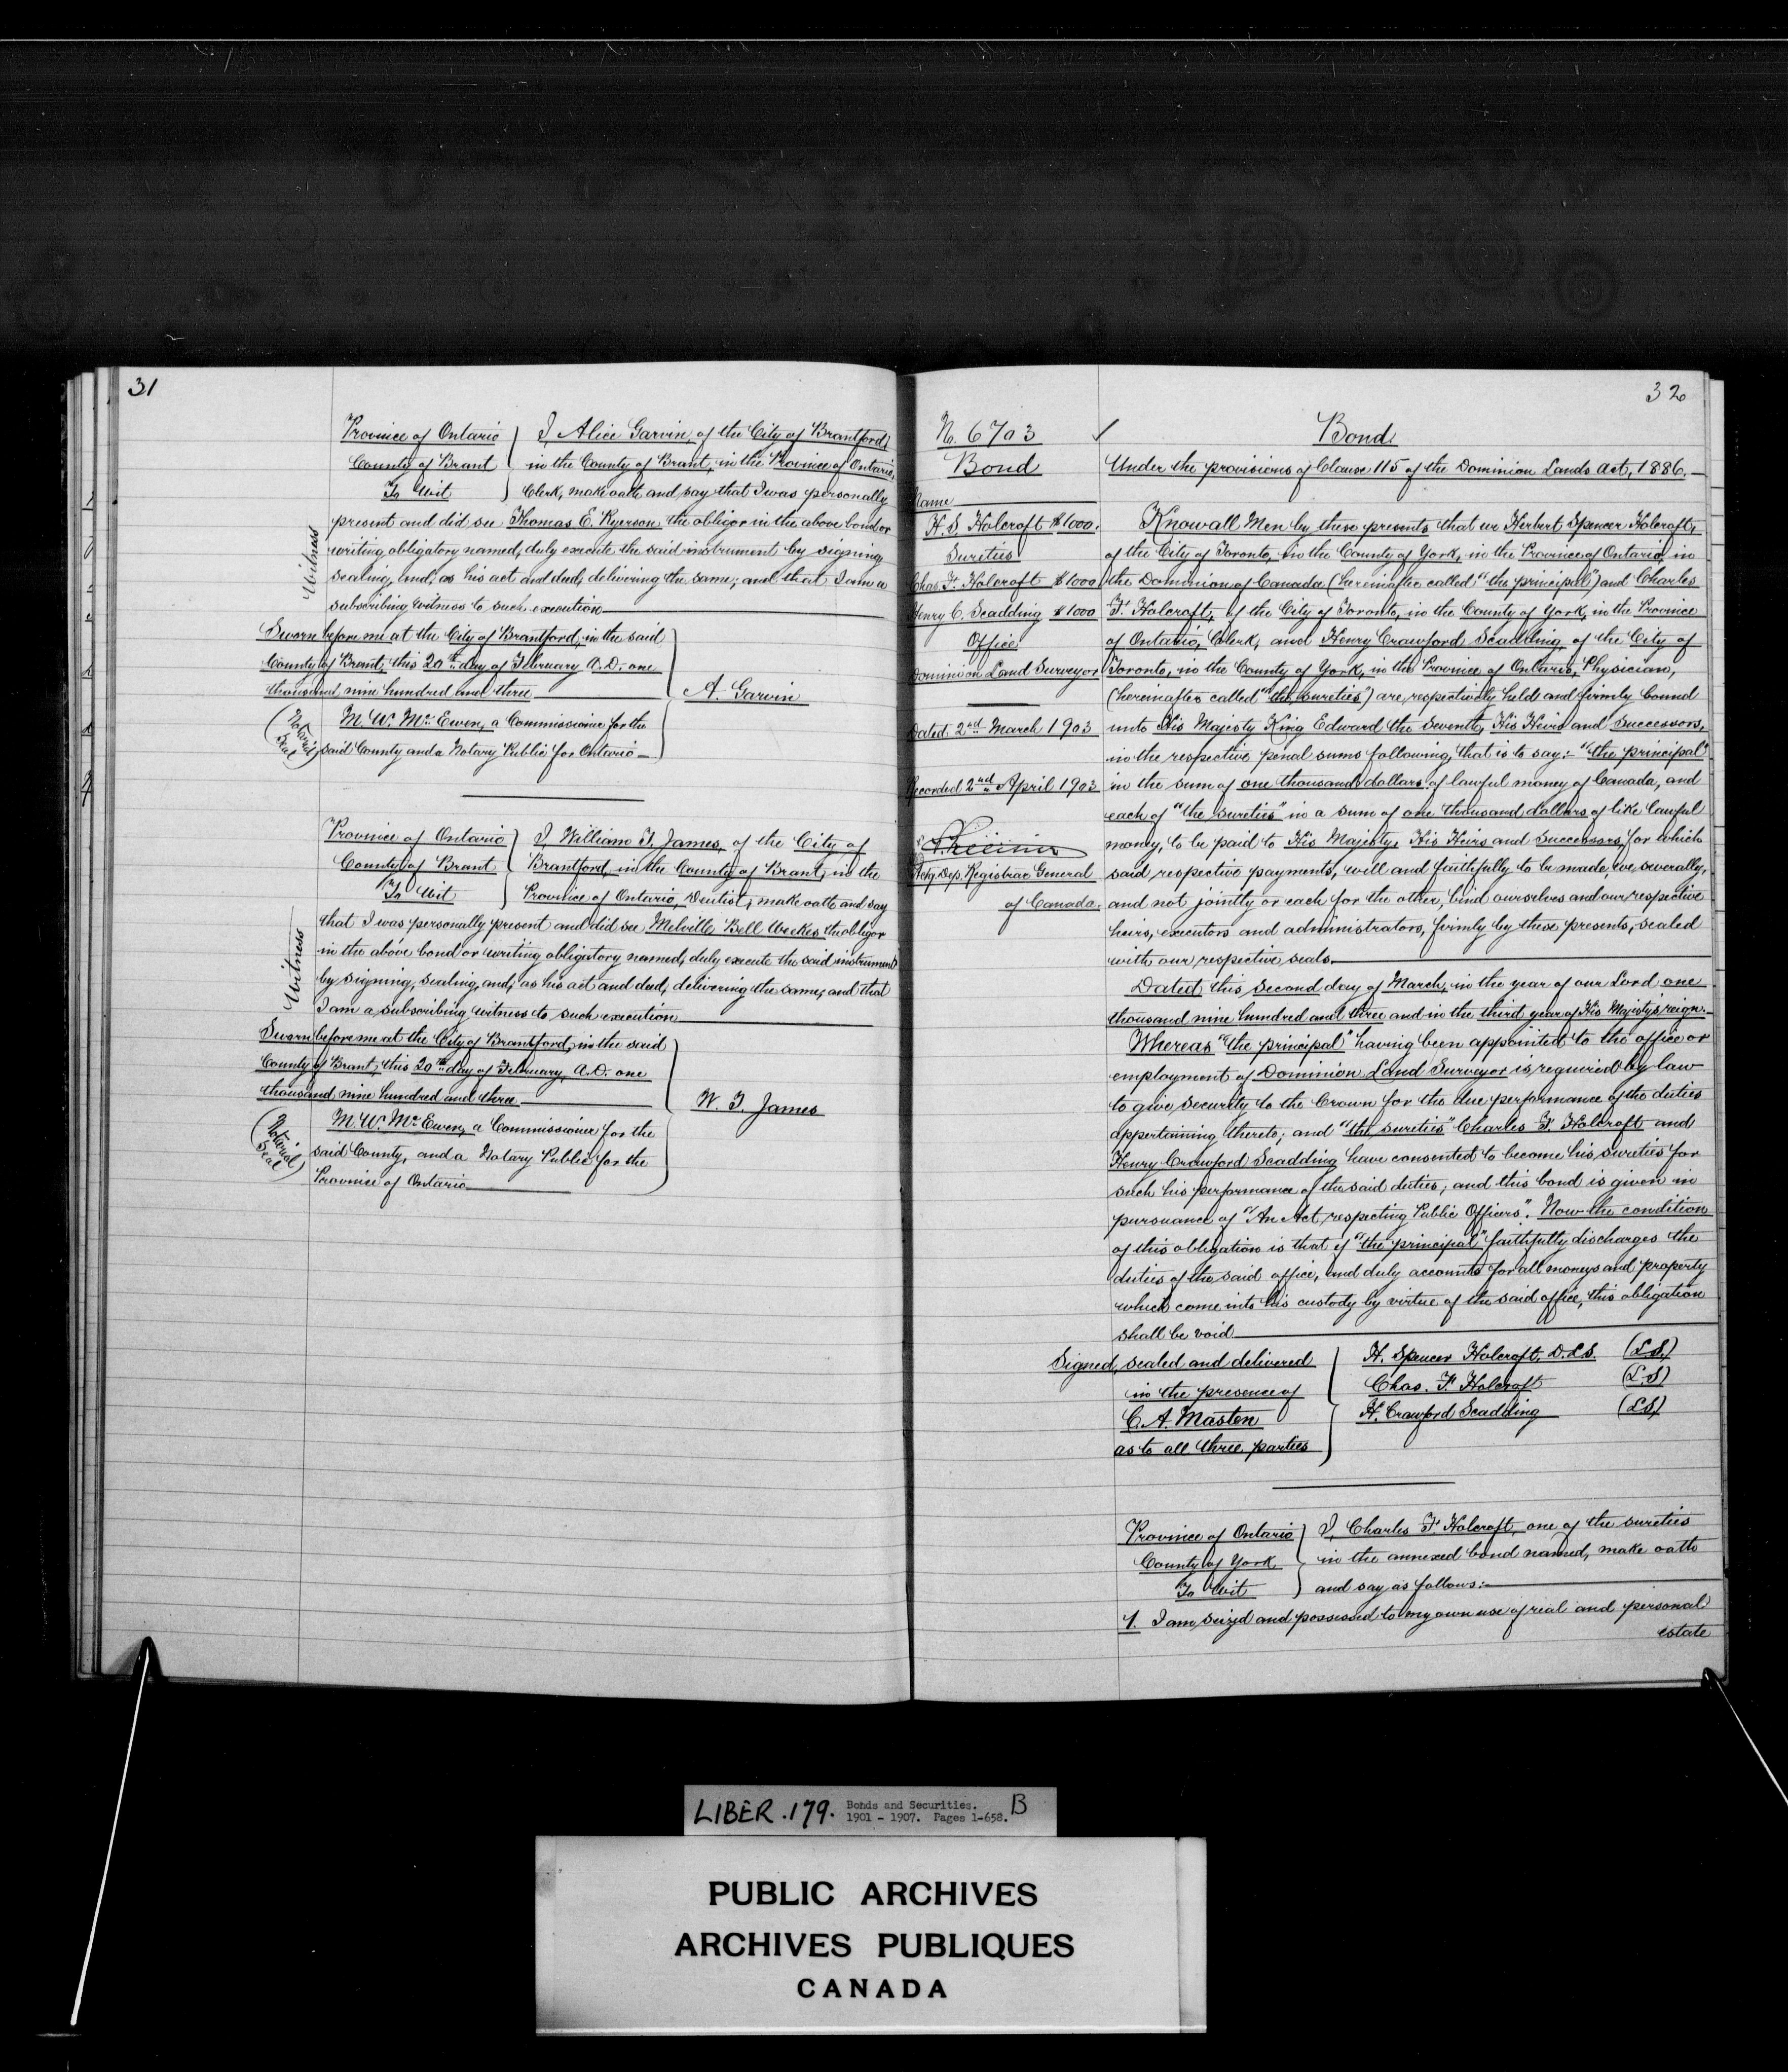 31
Province of Ontario } I, Alice Garvin, of the City of Brantford,
County of Brant } in the County of Brant, in the Province of Ontario,
To Wit } Clerk, make oath and say that I was personally
present and did see Thomas E. Ryerson the obligor in the above bond or
writing obligatory named, duly execute the said instrument by signing
sealing, and, as his act and deed, delivering the same; and that I am a
subscribing witness to such execution
Witness
Sworn before me at the City of Brantford, in the said
County of Brant, this 20th day of February A.D. one
thousand nine hundred and three
A. Garvin
M. W. McEwen, a Commissioner for the
said County and a Notary Public for Ontario
(Notarial Seal)
Province of Ontario } I, William T. James, of the City of
County of Brant } Brantford, in the County of Brant, in the
To Wit } Province of Ontario, Dentist, make oath and say
that I was personally present and did see Melville Bell Weekes the obligor
in the above bond or writing obligatory named, duly execute the said instrument
by signing, sealing, and, as his act and deed, delivering the same; and that
I am a subscribing witness to such execution
Witness
Sworn before me at the City of Brantford, in the said
County of Brant, this 20th day of February, A.D. one
thousand nine hundred and three
W. T. James
M. W. McEwen, a Commissioner for the
said County, and a Notary Public for the
Province of Ontario
(Notarial Seal)
32
No. 6703
Bond
Name
H. S. Holcroft $1000.
Sureties
Chas. F. Holcroft $1000
Henry C. Scadding $1000
Office
Dominion Land Surveyor
Dated 2nd March 1903
Recorded 2nd April 1903
Actg. Dep. Registrar General
of Canada.
Bond
Under the provisions of Clause 115 of the Dominion Lands Act, 1886.
Know all Men by these presents that we Herbert Spencer Holcroft,
of the City of Toronto, in the County of York, in the Province of Ontario, in
the Dominion of Canada (hereinafter called "the principal") and Charles
F. Holcroft, of the City of Toronto, in the County of York, in the Province
of Ontario, Clerk, and Henry Crawford Scadding, of the City of
Toronto, in the County of York, in the Province of Ontario, Physician,
(hereinafter called "the sureties") are respectively held and firmly bound
unto His Majesty King Edward the Seventh, His Heirs and Successors,
in the respective penal sums following, that is to say:- "the principal"
in the sum of one thousand dollars of lawful money of Canada, and
each of "the sureties" in a sum of one thousand dollars of like lawful
money, to be paid to His Majesty, His Heirs and Successors, for which
said respective payments, well and faithfully to be made, we, severally,
and not jointly or each for the other, bind ourselves and our respective
heirs, executors and administrators, firmly by these presents, sealed
with our respective seals.
Dated, this second day of March, in the year of our Lord one
thousand nine hundred and three and in the third year of His Majesty's reign.
Whereas "the principal" having been appointed to the office or
employment of Dominion Land Surveyor is required by law
to give security to the Crown for the due performance of the duties
appertaining thereto; and "the sureties" Charles F. Holcroft and
Henry Crawford Scadding have consented to become his sureties for
such his performance of the said duties; and this bond is given in
pursuance of "An Act respecting Public Officers". Now the condition
of this obligation is that if "the principal" faithfully discharges the
duties of the said office, and duly accounts for all moneys and property
which come into his custody by virtue of the said office, this obligation
shall be void
Signed, sealed and delivered } H. Spencer Holcroft, D.L.S. (L.S.)
in the presence of } Chas. F. Holcroft (L.S)
C. A. Masten } H. Crawford Scadding (L.S)
as to all three parties
Province of Ontario } I, Charles F. Holcroft, one of the sureties
County of York } in the annexed bond named, make oath
To Wit } and say as follows:-
1. I am seized and possessed to my own use of real and personal
estate
LIBER .179. Bonds and Securities. B
1901 - 1907. Pages 1-658.
PUBLIC ARCHIVES
ARCHIVES PUBLIQUES
CANADA